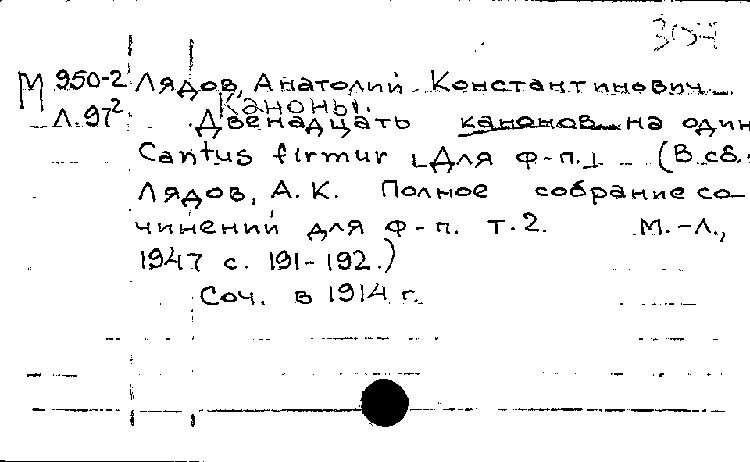 304
М 950-2 Лядов, Анатолий Константинович
Каноны.
Л.97² Двенадцать канонов на один
Cantus firmur [Для ф-п.] (В сб.:
Лядов, А.К. Полное собрание со-
чинений для ф-п. т.2. М.-Л.,
1947 с. 191-192.)
Соч. в 1914 г.